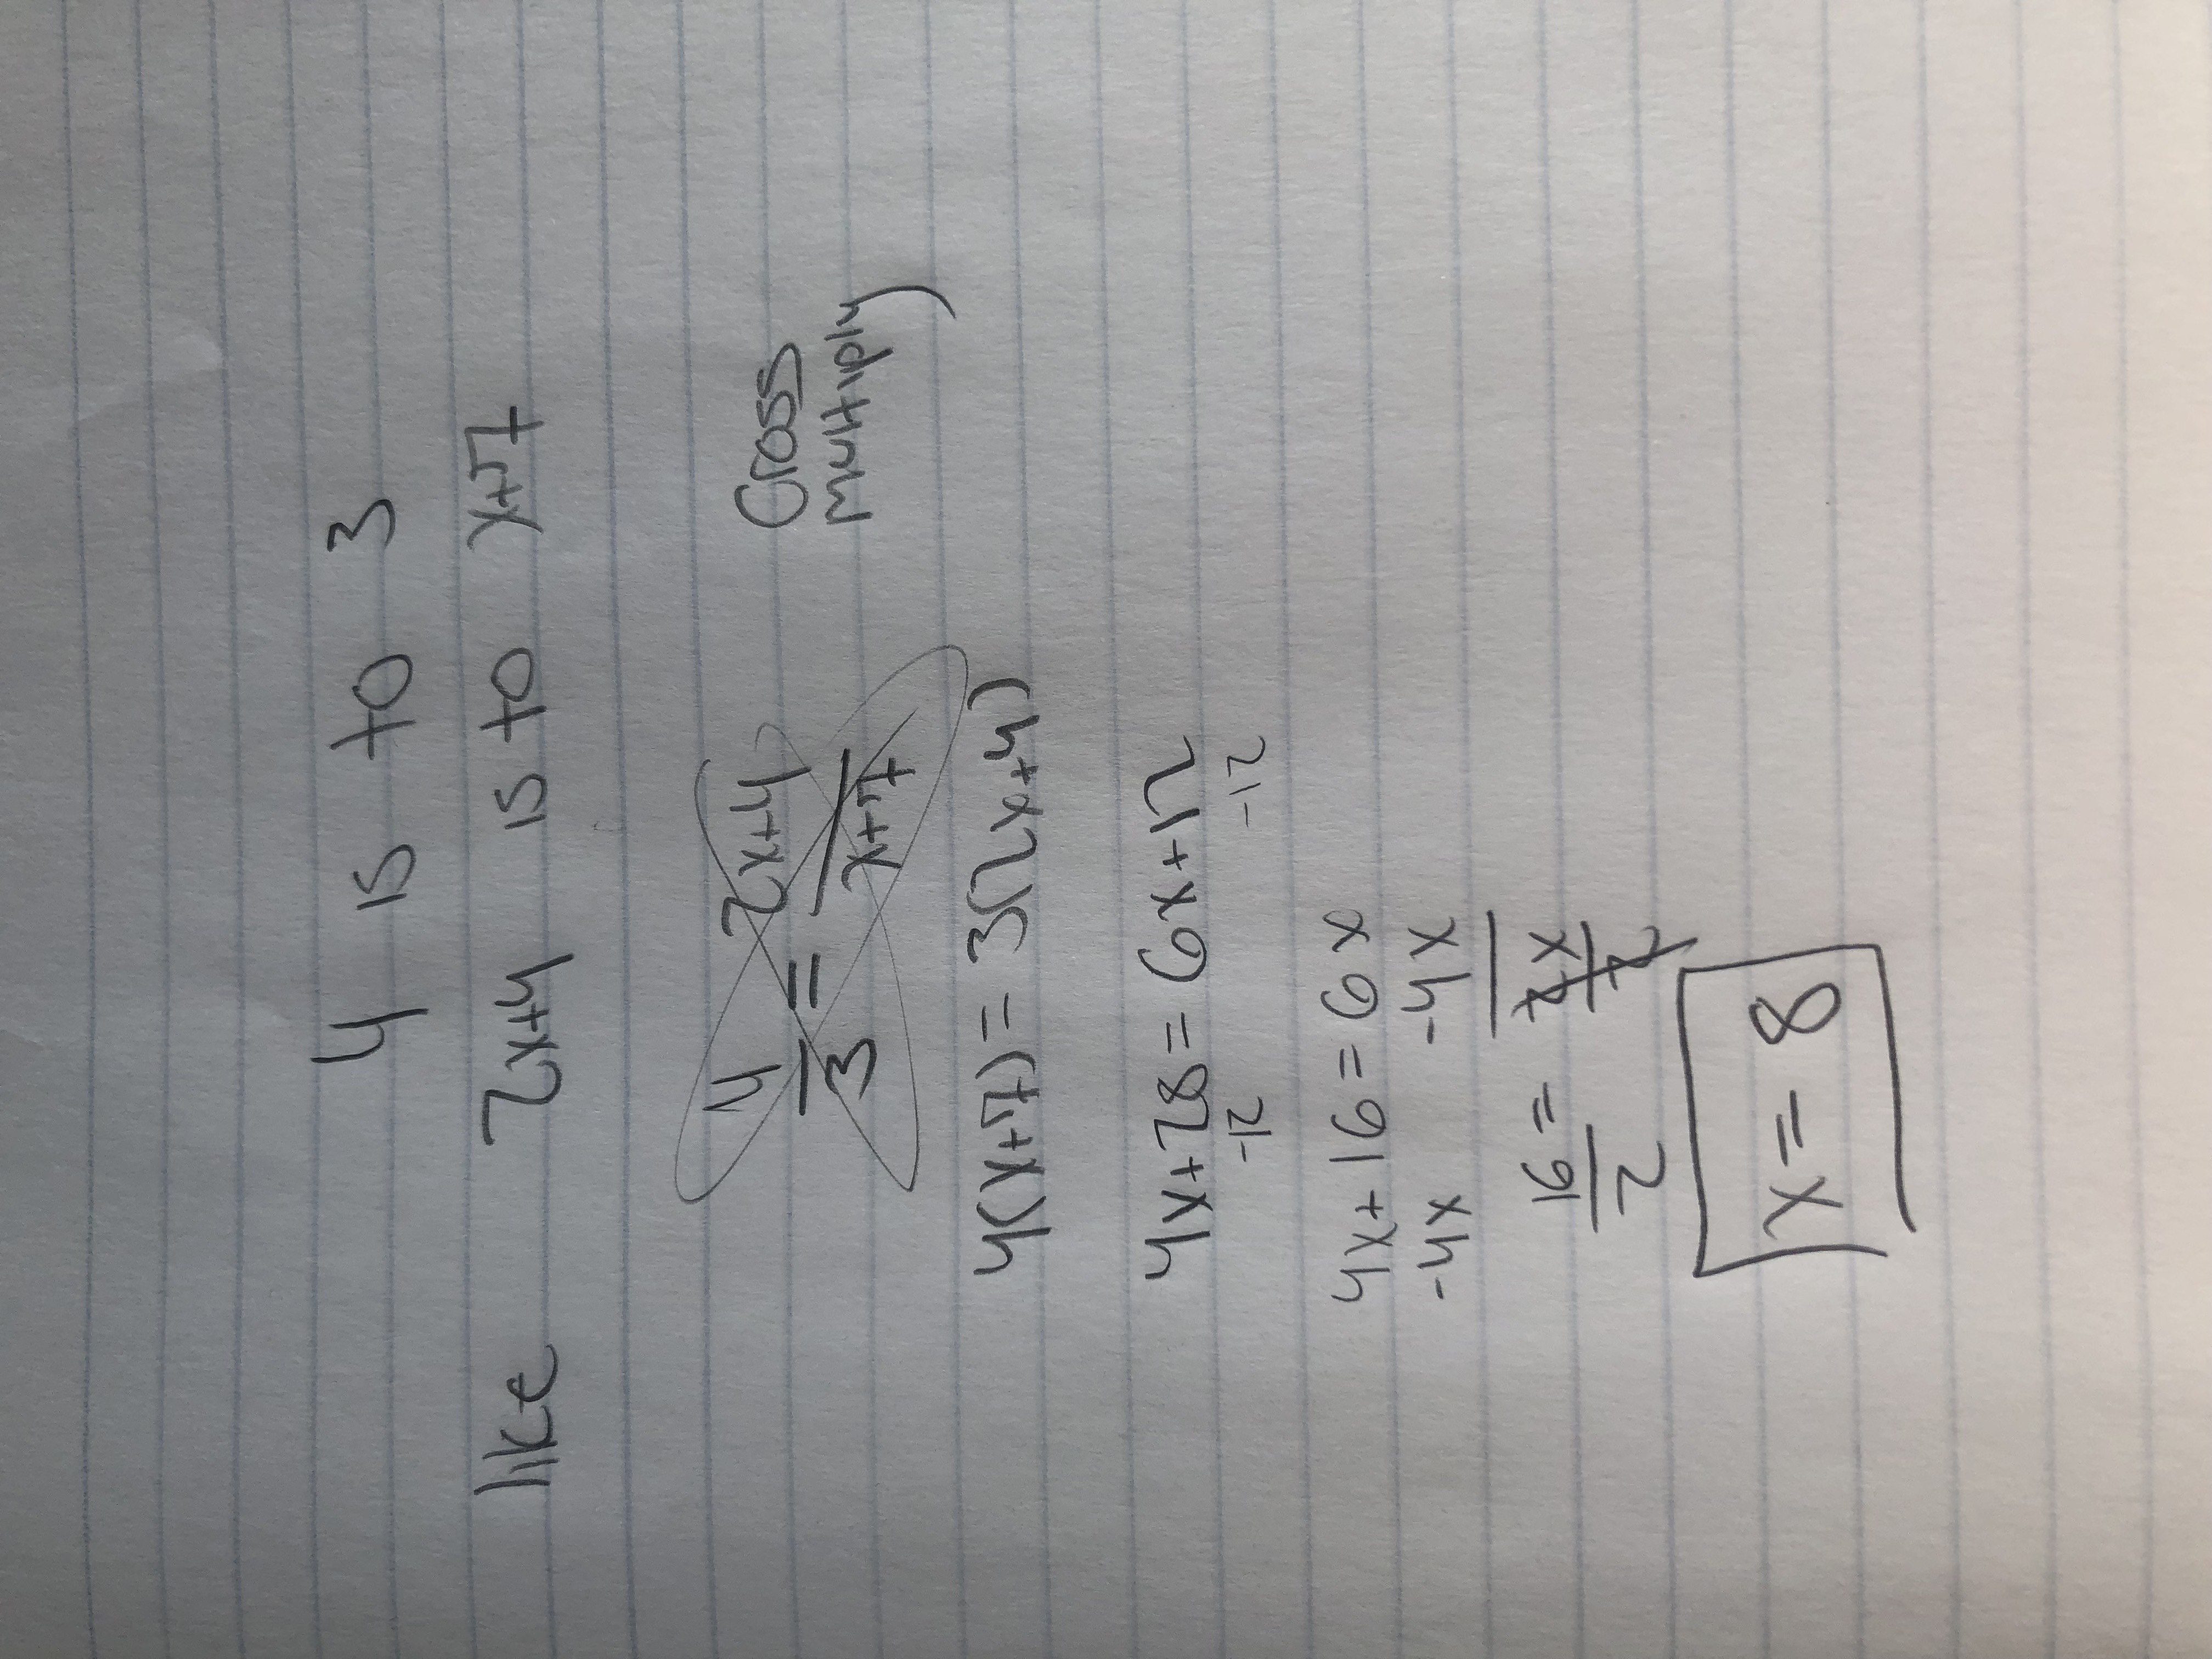 4 is to 3
like 2x+4 is to x+7
4/3 = 2x+4/x+7 Cross multiply
4(x+7) = 3(2x+4)
4x+28 = 6x+12
-12 -12
4x+16 = 6x
-4x -4x
16/2 = 2x/2
x = 8